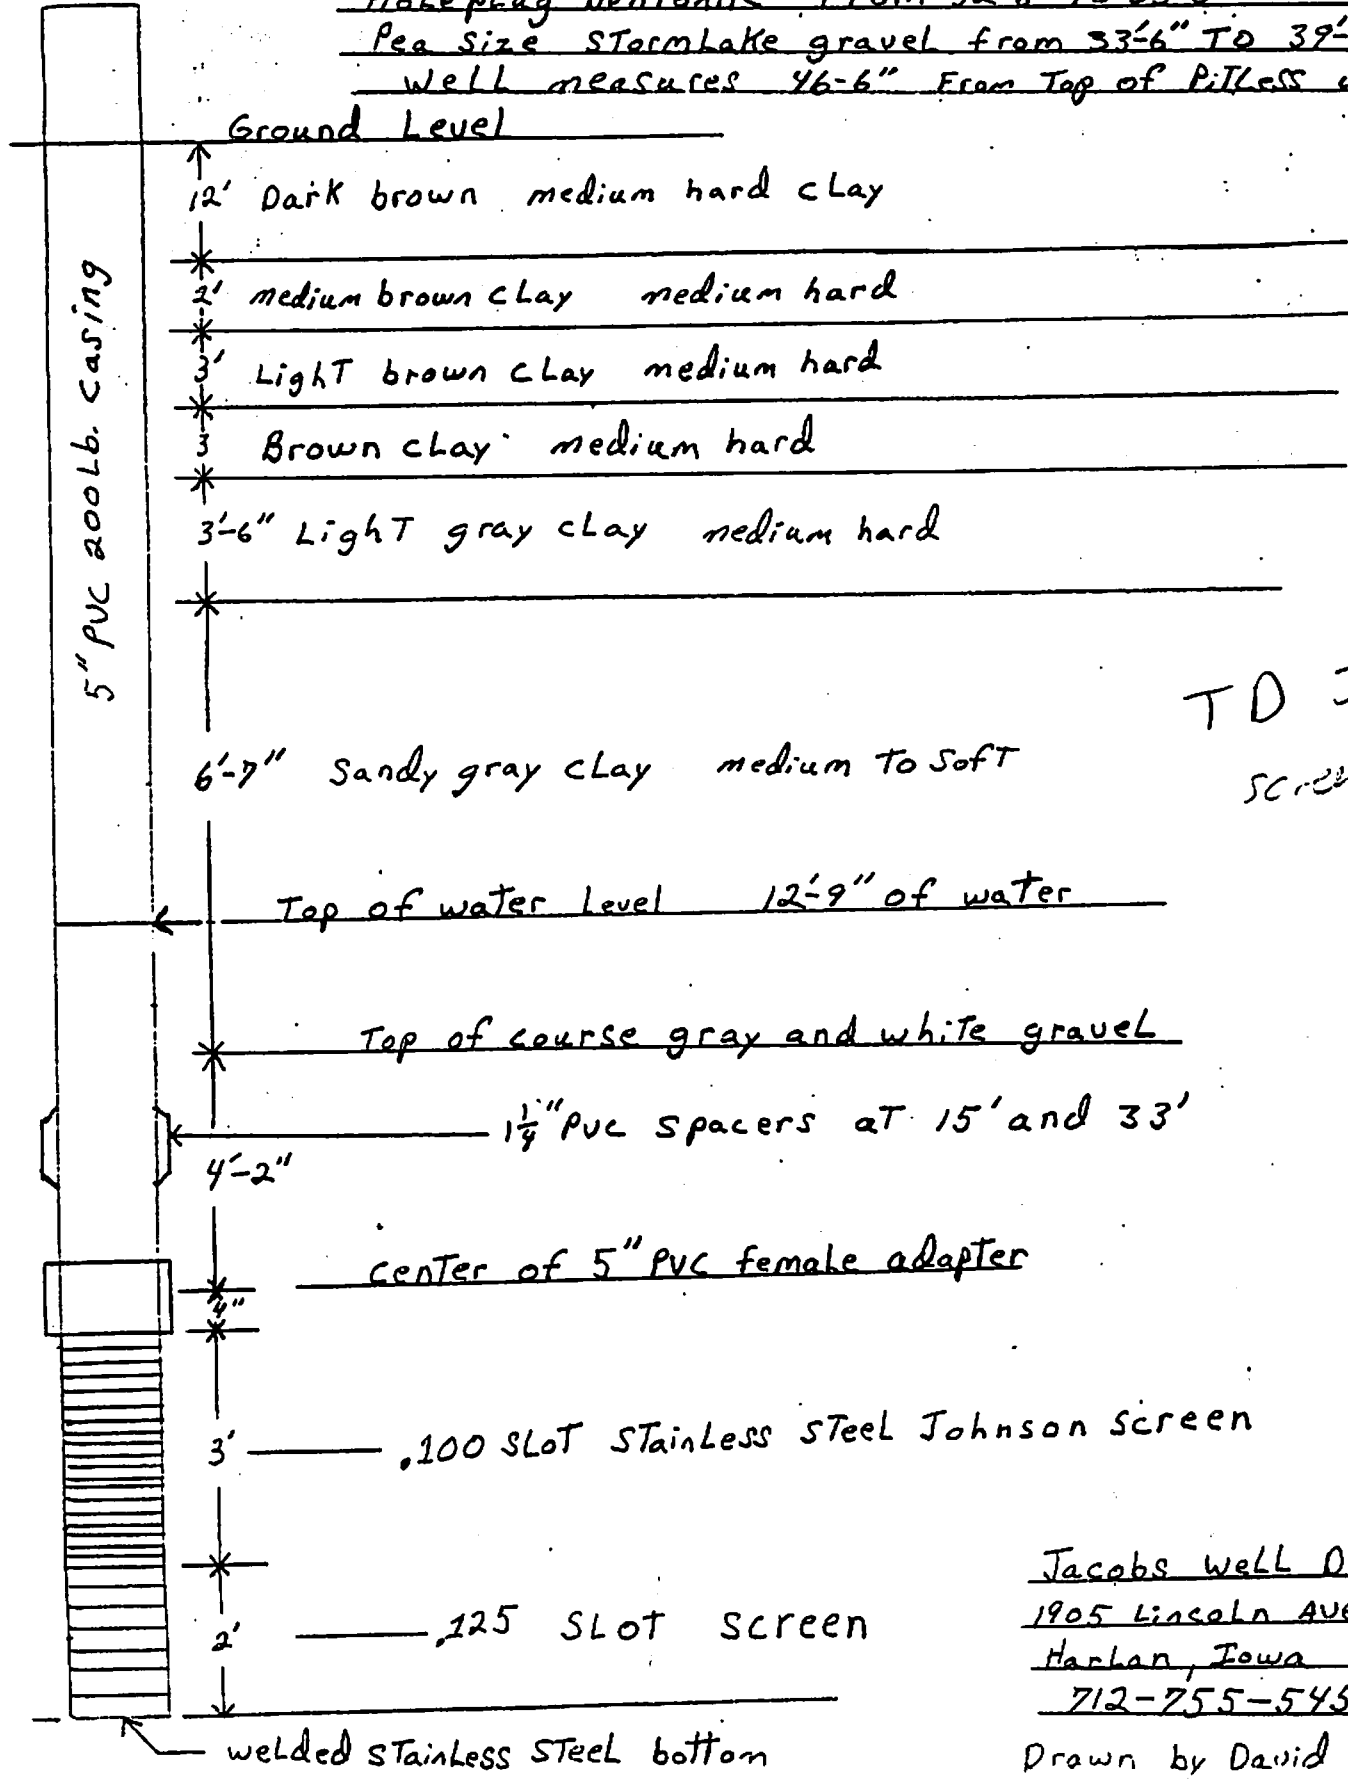 Pea Size STormLake gravel from 33'-6" TO 39'-
Well measures 46-6" From Top of PiTLess
Ground Level
12' Dark brown medium hard cLay
2' medium brown cLay medium hard
3' LighT brown cLay medium hard
3 Brown cLay medium hard
3'-6" LighT gray cLay medium hard
5" PVC 200Lb. casing
TD
6'-7" Sandy gray cLay medium To SofT
Top of water Level 12'-9" of water
Top of course gray and white graveL
1 1/4" PVC spacers aT 15' and 33'
4'-2"
center of 5" PVC femaLe adapter
4"
3' .100 SLoT STainLess STeeL Johnson Screen
2' .125 SLOT screen
weLded STainLess STeeL bottom
Jacobs WeLL D
1905 LincoLn AVE
HarLan, Iowa
712-755-545
Drawn by David